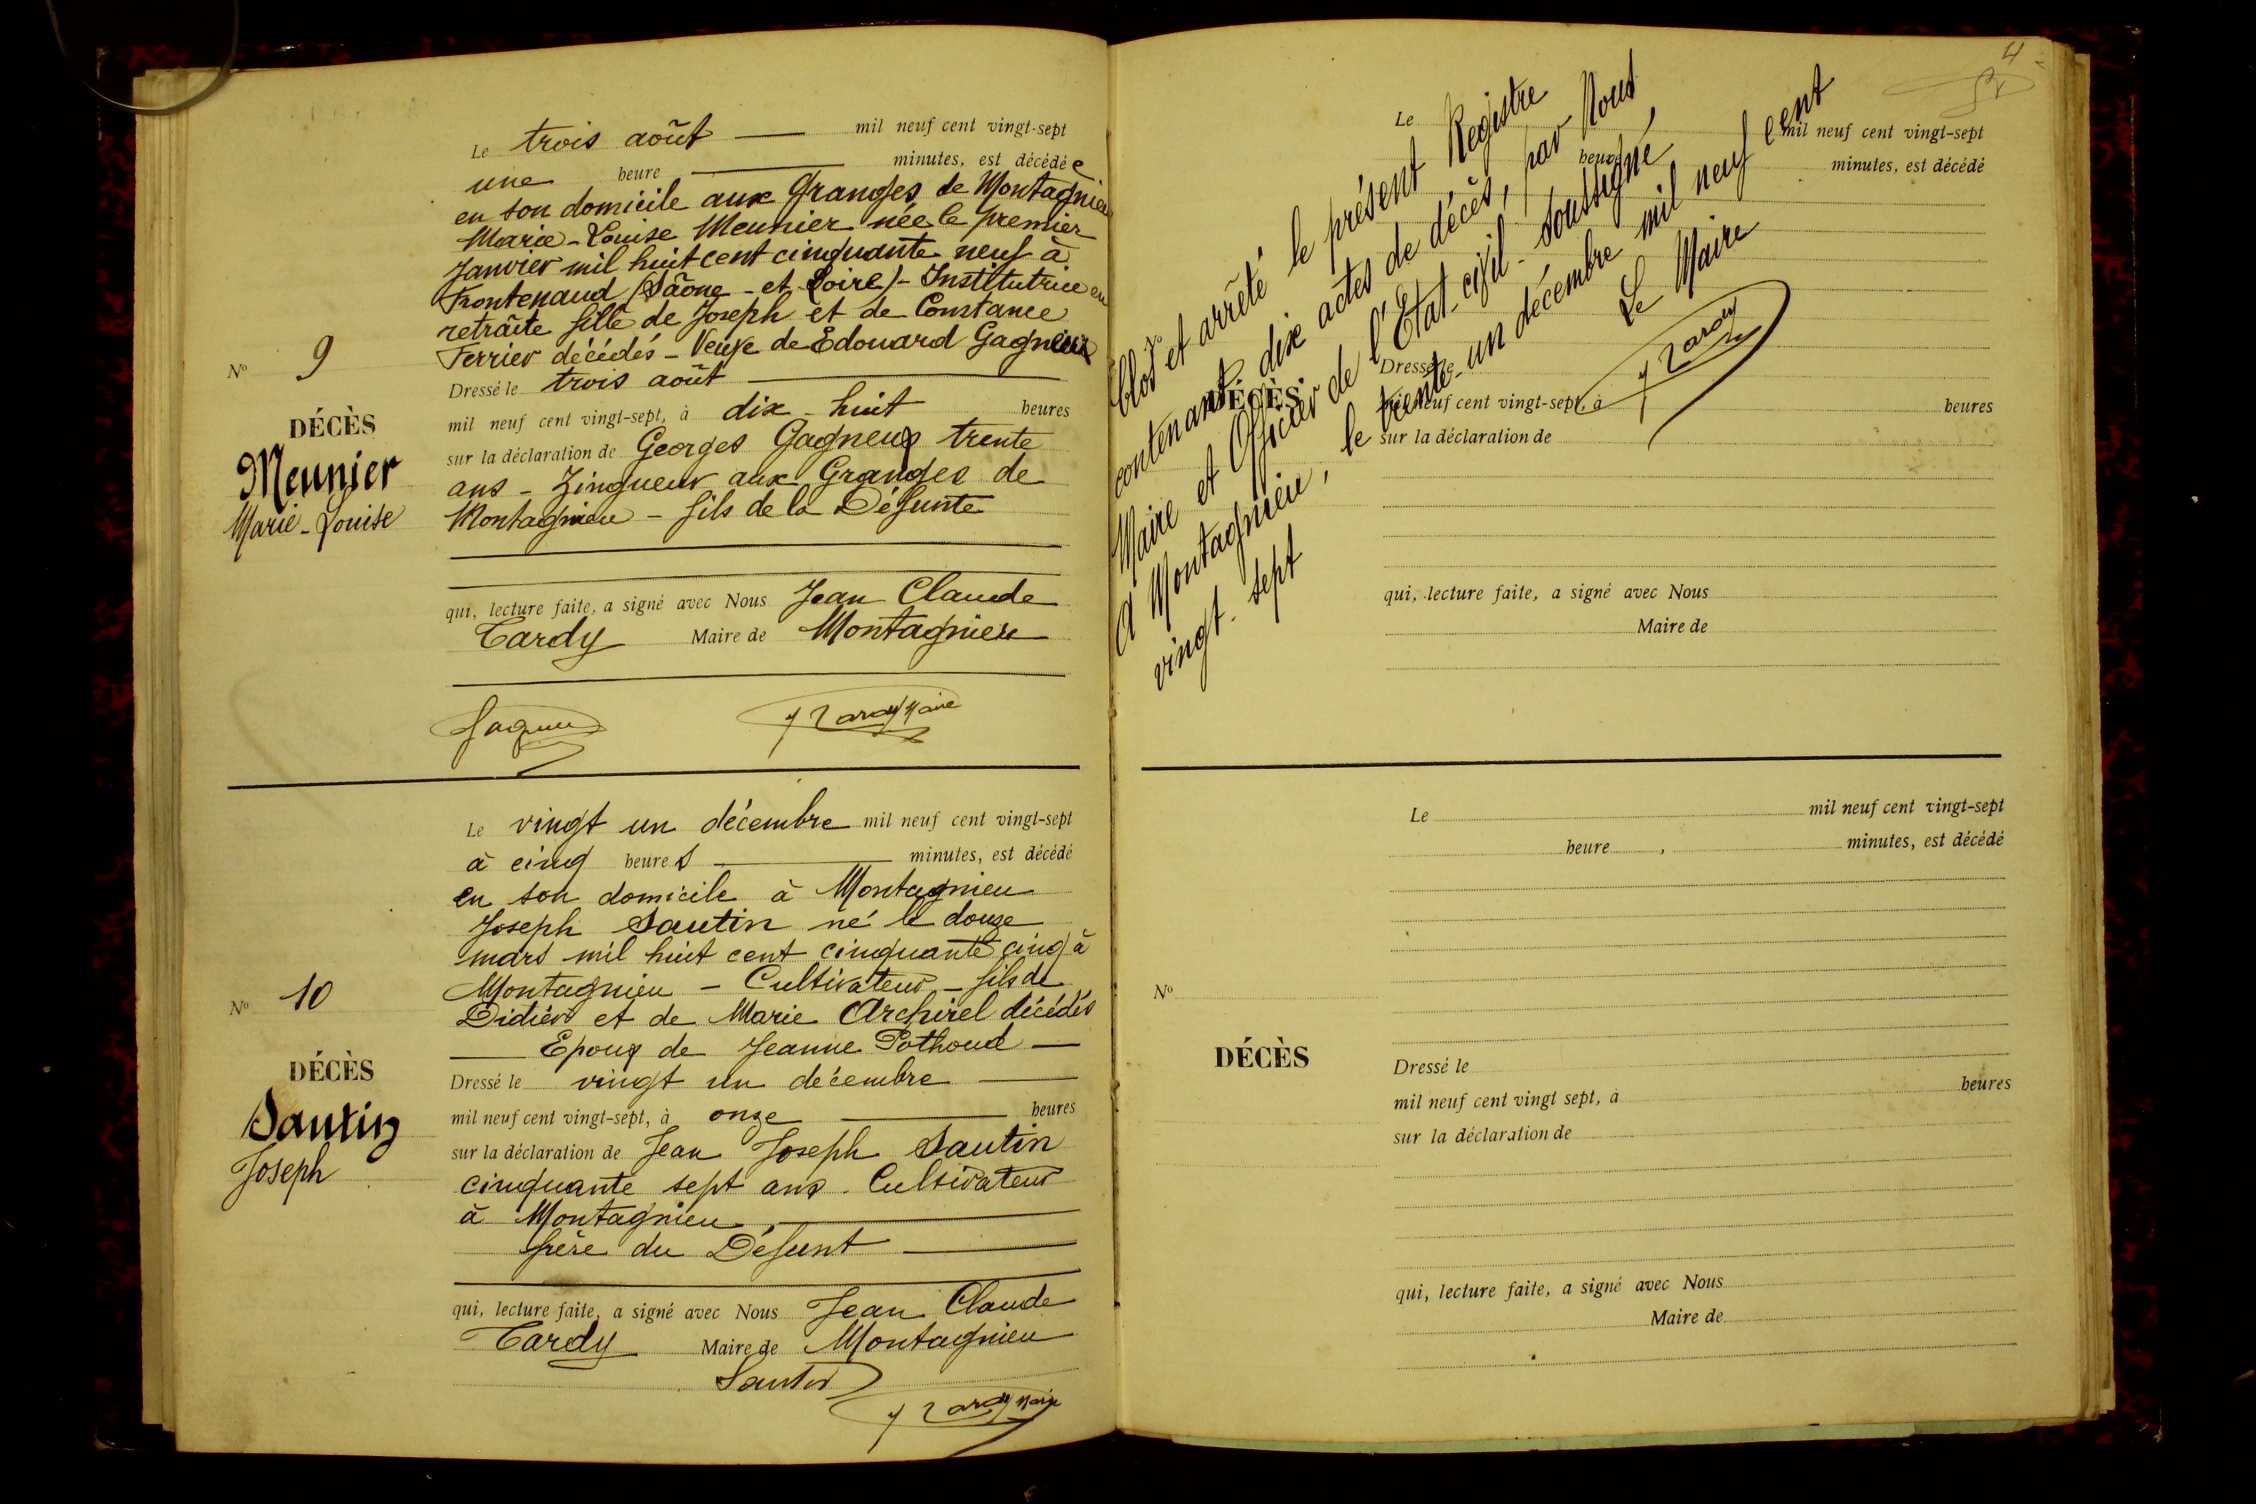 Le trois août — mil neuf cent vingt-sept
une heure — minutes, est décédée
en son domicile aux Granges de Montagnieu
Marie-Louise Meunier née le premier
Janvier mil huit cent cinquante neuf à
Frontenaud (Sâone-et-Loire)- Institutrice en
retraite fille de Joseph et de Constance
Ferrier décédés - Veuve de Edouard Gagneux
Nº 9
Dressé le trois août
mil neuf cent vingt-sept, à dix-huit heures
DÉCÈS
sur la déclaration de Georges Gagneux trente
Meunier
ans - Zingueur aux Granges de
Marie-Louise
Montagnieu - fils de la Défunte
qui, lecture faite, a signé avec Nous Jean Claude
Tardy Maire de Montagnieu
Gagneux
J Tardy Maire
Le vingt un décembre mil neuf cent vingt-sept
à cinq heures — minutes, est décédé
en son domicile à Montagnieu
Joseph Sautin né le douze
mars mil huit cent cinquante cinq à
Montagnieu - Cultivateur - fils de
Nº 10
Didier et de Marie Archirel décédés
— Epoux de Jeanne Pothoud —
DÉCÈS
Dressé le vingt un décembre —
Sautin
mil neuf cent vingt-sept, à onze — heures
Joseph
sur la déclaration de Jean Joseph Sautin
cinquante sept ans. Cultivateur
à Montagnieu,
frère du Défunt
qui, lecture faite, a signé avec Nous Jean Claude
Tardy Maire de Montagnieu
Sautin
J Tardy Maire
4
Clos et arrêté le présent Registre
contenant dix actes de décès, par Nous
Maire et Officier de l'Etat-civil-soussigné,
A Montagnieu, le trente-un décembre mil neuf cent
vingt-sept
Le Maire
J Tardy
Le mil neuf cent vingt-sept
heure minutes, est décédé
Nº
Dressé le
DÉCÈS
mil neuf cent vingt-sept, à heures
sur la déclaration de
qui, lecture faite, a signé avec Nous
Maire de
Le mil neuf cent vingt-sept
heure , minutes, est décédé
Nº
DÉCÈS
Dressé le
mil neuf cent vingt sept, à heures
sur la déclaration de
qui, lecture faite, a signé avec Nous
Maire de